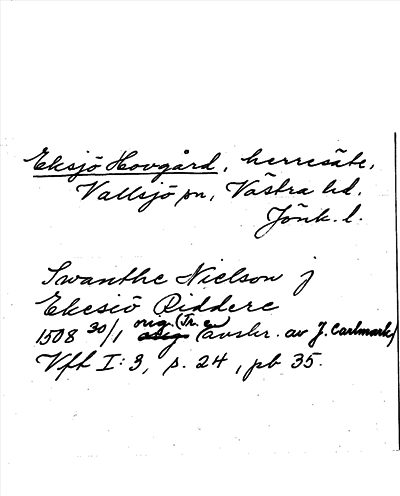 Eksjö Hovgård, herresäte,
Vallsjö sn, Västra hd.
Jönk. l.
Swanthe Nielson j
Ekesiö Riddere
1508 30/1 orig. (Tr. e. avskr. av J. Carlmark)
Vfh I:3, s. 24, pb 35.